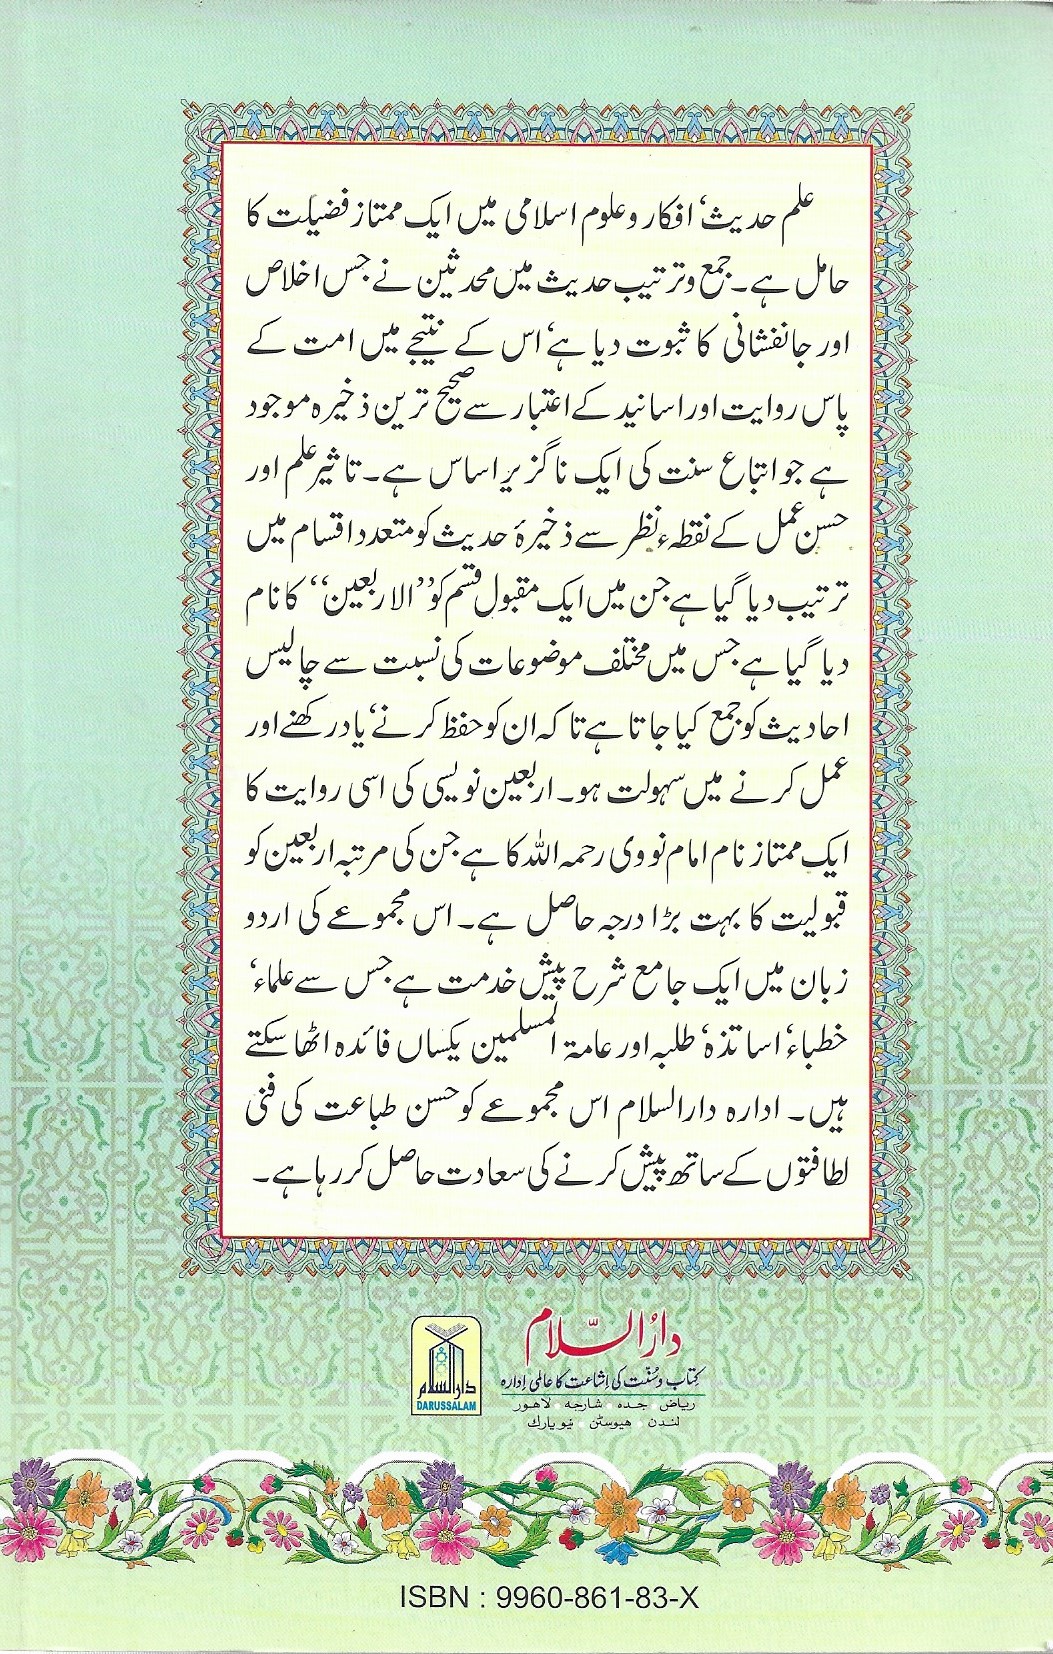 علم حدیث‘ افکار و علوم اسلامی میں ایک ممتاز فضیلت کا
حامل ہے۔ جمع و ترتیب حدیث میں محدثین نے جس اخلاص
اور جانفشانی کا ثبوت دیا ہے‘ اس کے نتیجے میں امت کے
پاس روایت اور اسانید کے اعتبار سے صحیح ترین ذخیرہ موجود
ہے جو اتباع سنت کی ایک ناگزیر اساس ہے۔ تاثیر علم اور
حسن عمل کے نقطہء نظر سے ذخیرۂ حدیث کو متعدد اقسام میں
ترتیب دیا گیا ہے جن میں ایک مقبول قسم کو ’’الاربعین‘‘ کا نام
دیا گیا ہے جس میں مختلف موضوعات کی نسبت سے چالیس
احادیث کو جمع کیا جاتا ہے تاکہ ان کو حفظ کرنے‘ یاد رکھنے اور
عمل کرنے میں سہولت ہو۔ اربعین نویسی کی اسی روایت کا
ایک ممتاز نام امام نووی رحمہ اللہ کا ہے جن کی مرتبہ اربعین کو
قبولیت کا بہت بڑا درجہ حاصل ہے۔ اس مجموعے کی اردو
زبان میں ایک جامع شرح پیش خدمت ہے جس سے علماء‘
خطباء‘ اساتذہ‘ طلبہ اور عامۃ المسلمین یکساں فائدہ اٹھا سکتے
ہیں۔ ادارہ دارالسلام اس مجموعے کو حسن طباعت کی فنی
لطافتوں کے ساتھ پیش کرنے کی سعادت حاصل کر رہا ہے۔
دارُالسّلام
کتاب و سُنّت کی اِشاعت کا عالمی اِدارہ
ریاض • جدہ • شارجہ • لاہور
لندن • ہیوسٹن • نیویارک
دارالسلام
DARUSSALAM
ISBN : 9960-861-83-X